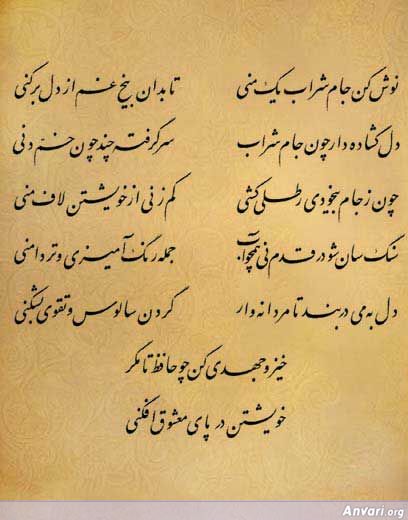 نوش کن جام شراب یک منی تا بدان بیخ غم از دل برکنی
دل گشاده دار چون جام شراب سر گرفته چند چون خم دنی
چون ز جام بیخودی رطلی کشی کم زنی از خویشتن لاف منی
سنگ سان شو در قدم نی همچو آب جمله رنگ آمیزی و تردامنی
دل به می دربند تا مردانه وار گردن سالوس و تقوی بشکنی
خیز و جهدی کن چو حافظ تا مگر
خویشتن در پای معشوق افکنی
Anvari.org